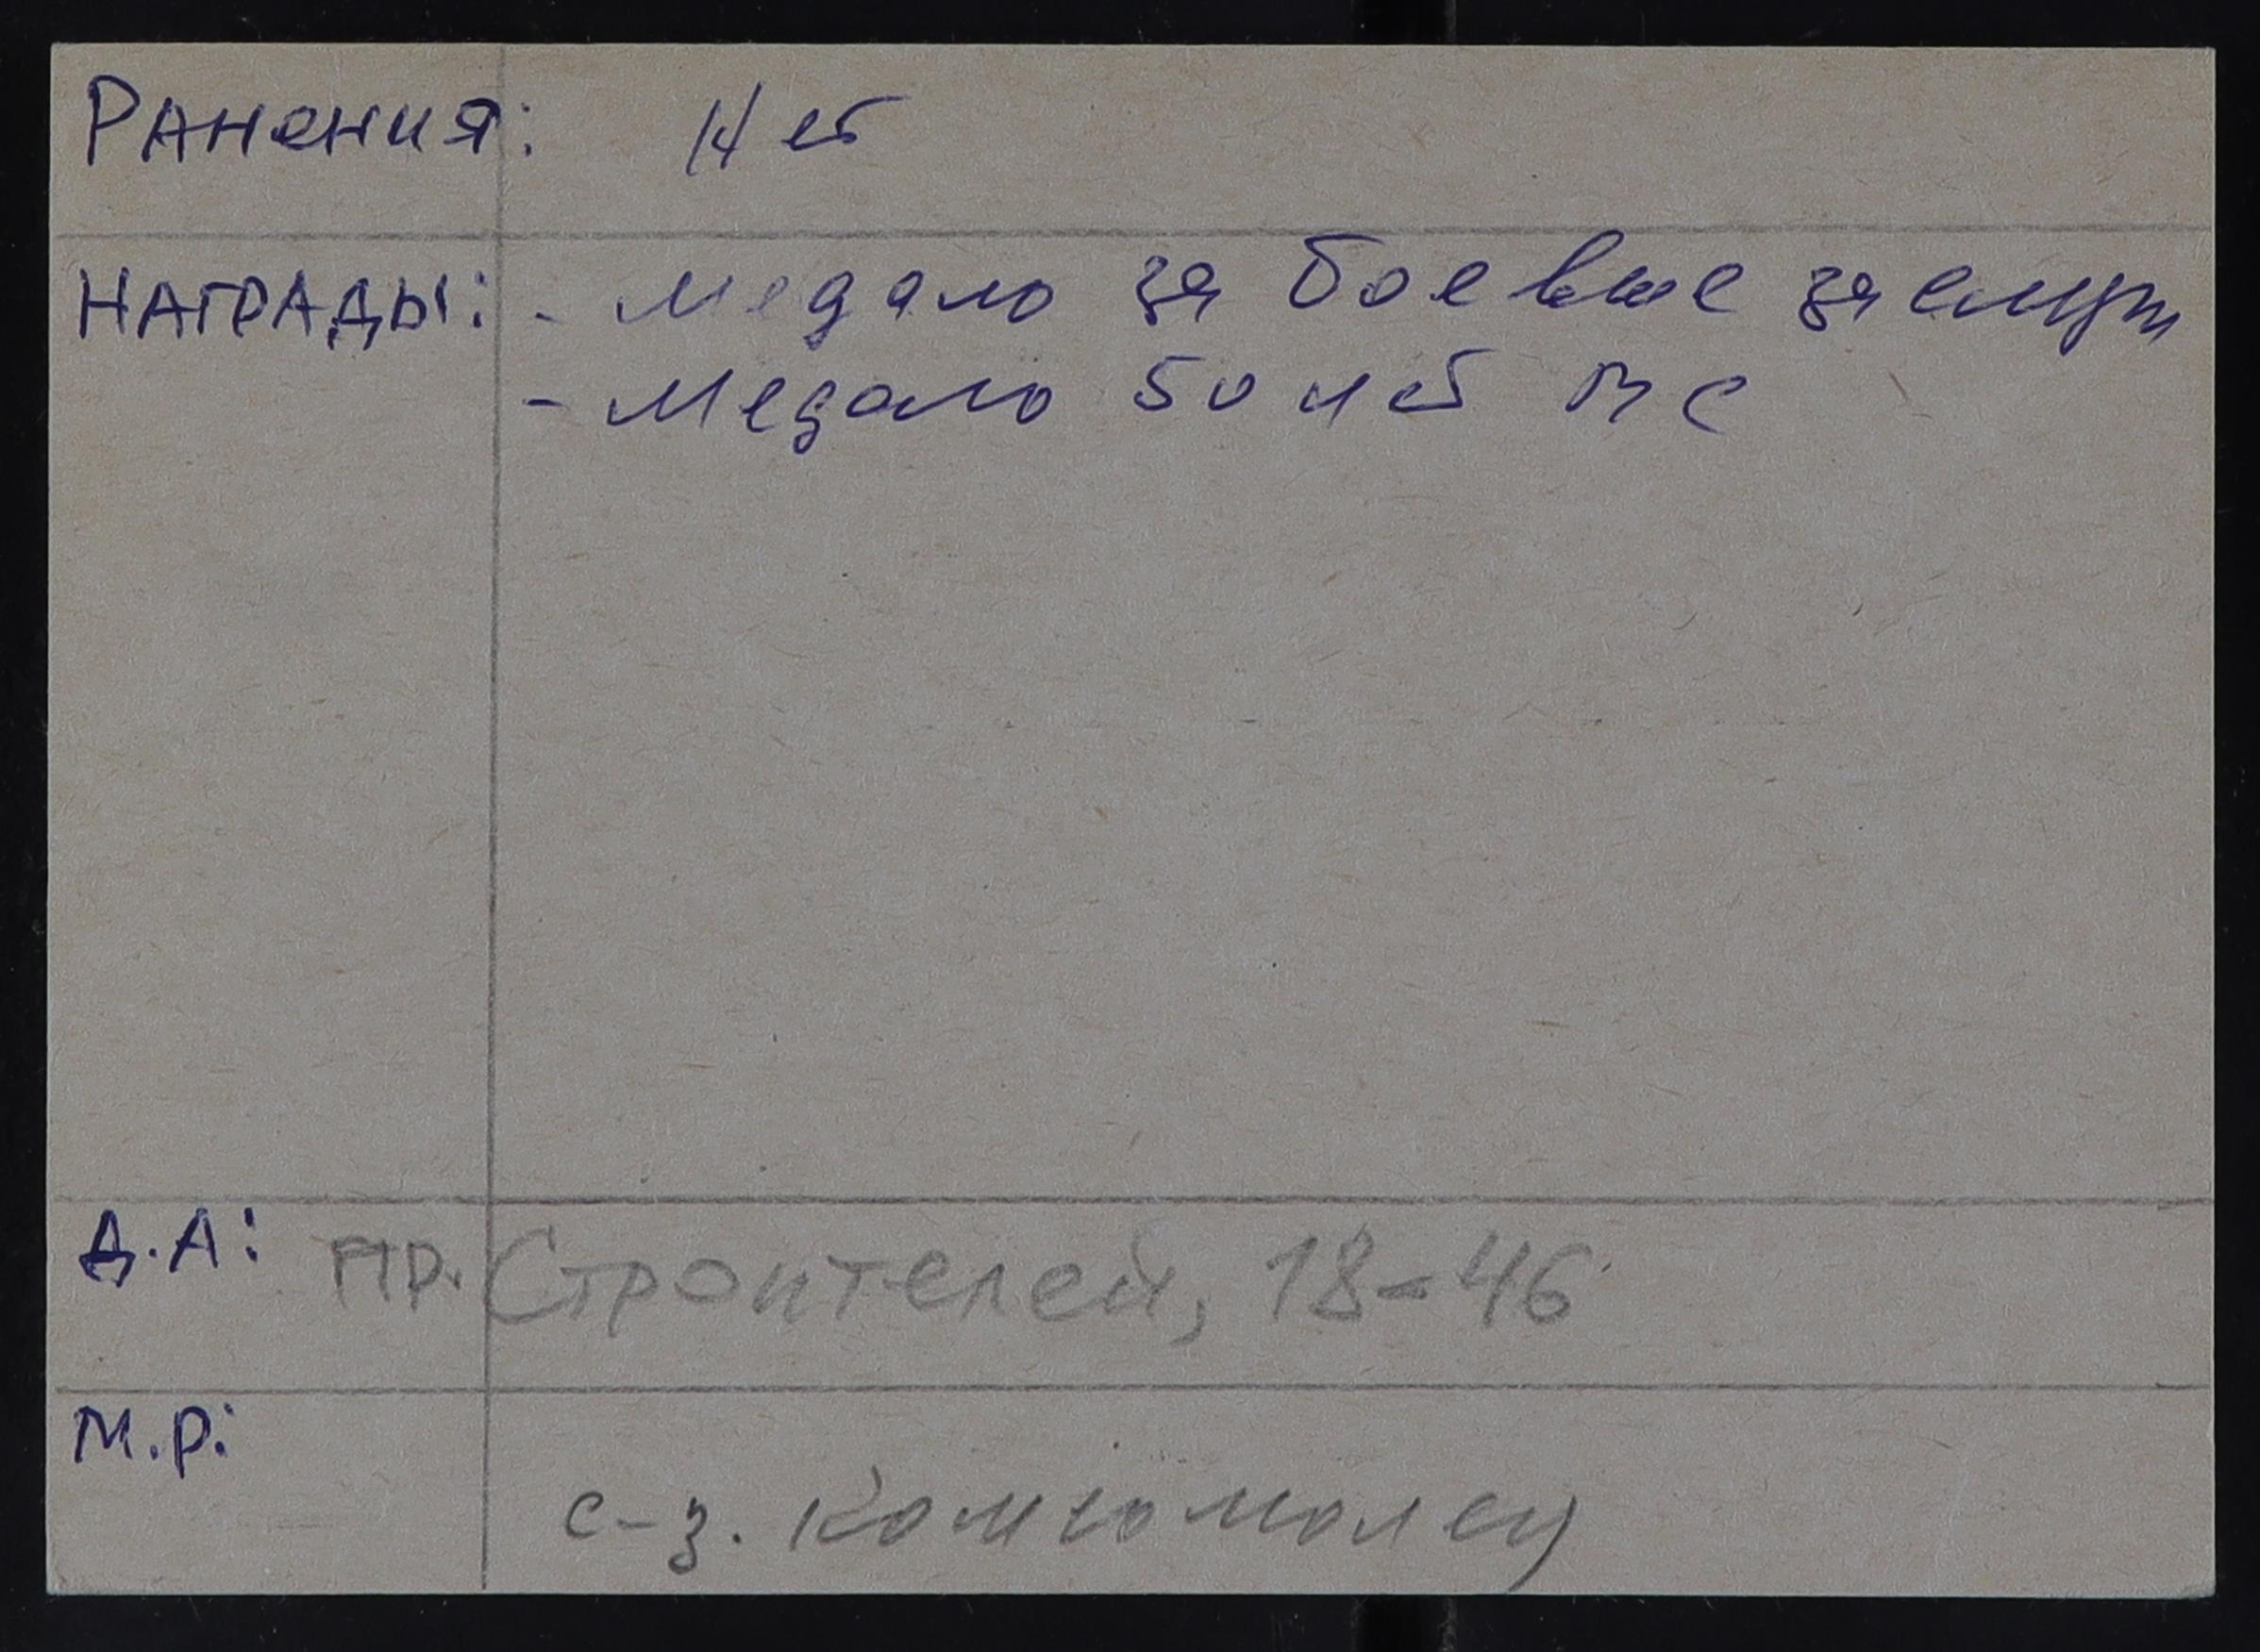 Ранения: Нет
Награды: - медаль за боевые заслуги
- медаль 50 лет ВС
Д.А: пр. Строителей, 18-46
М.Р:
с-з. Комсомолец